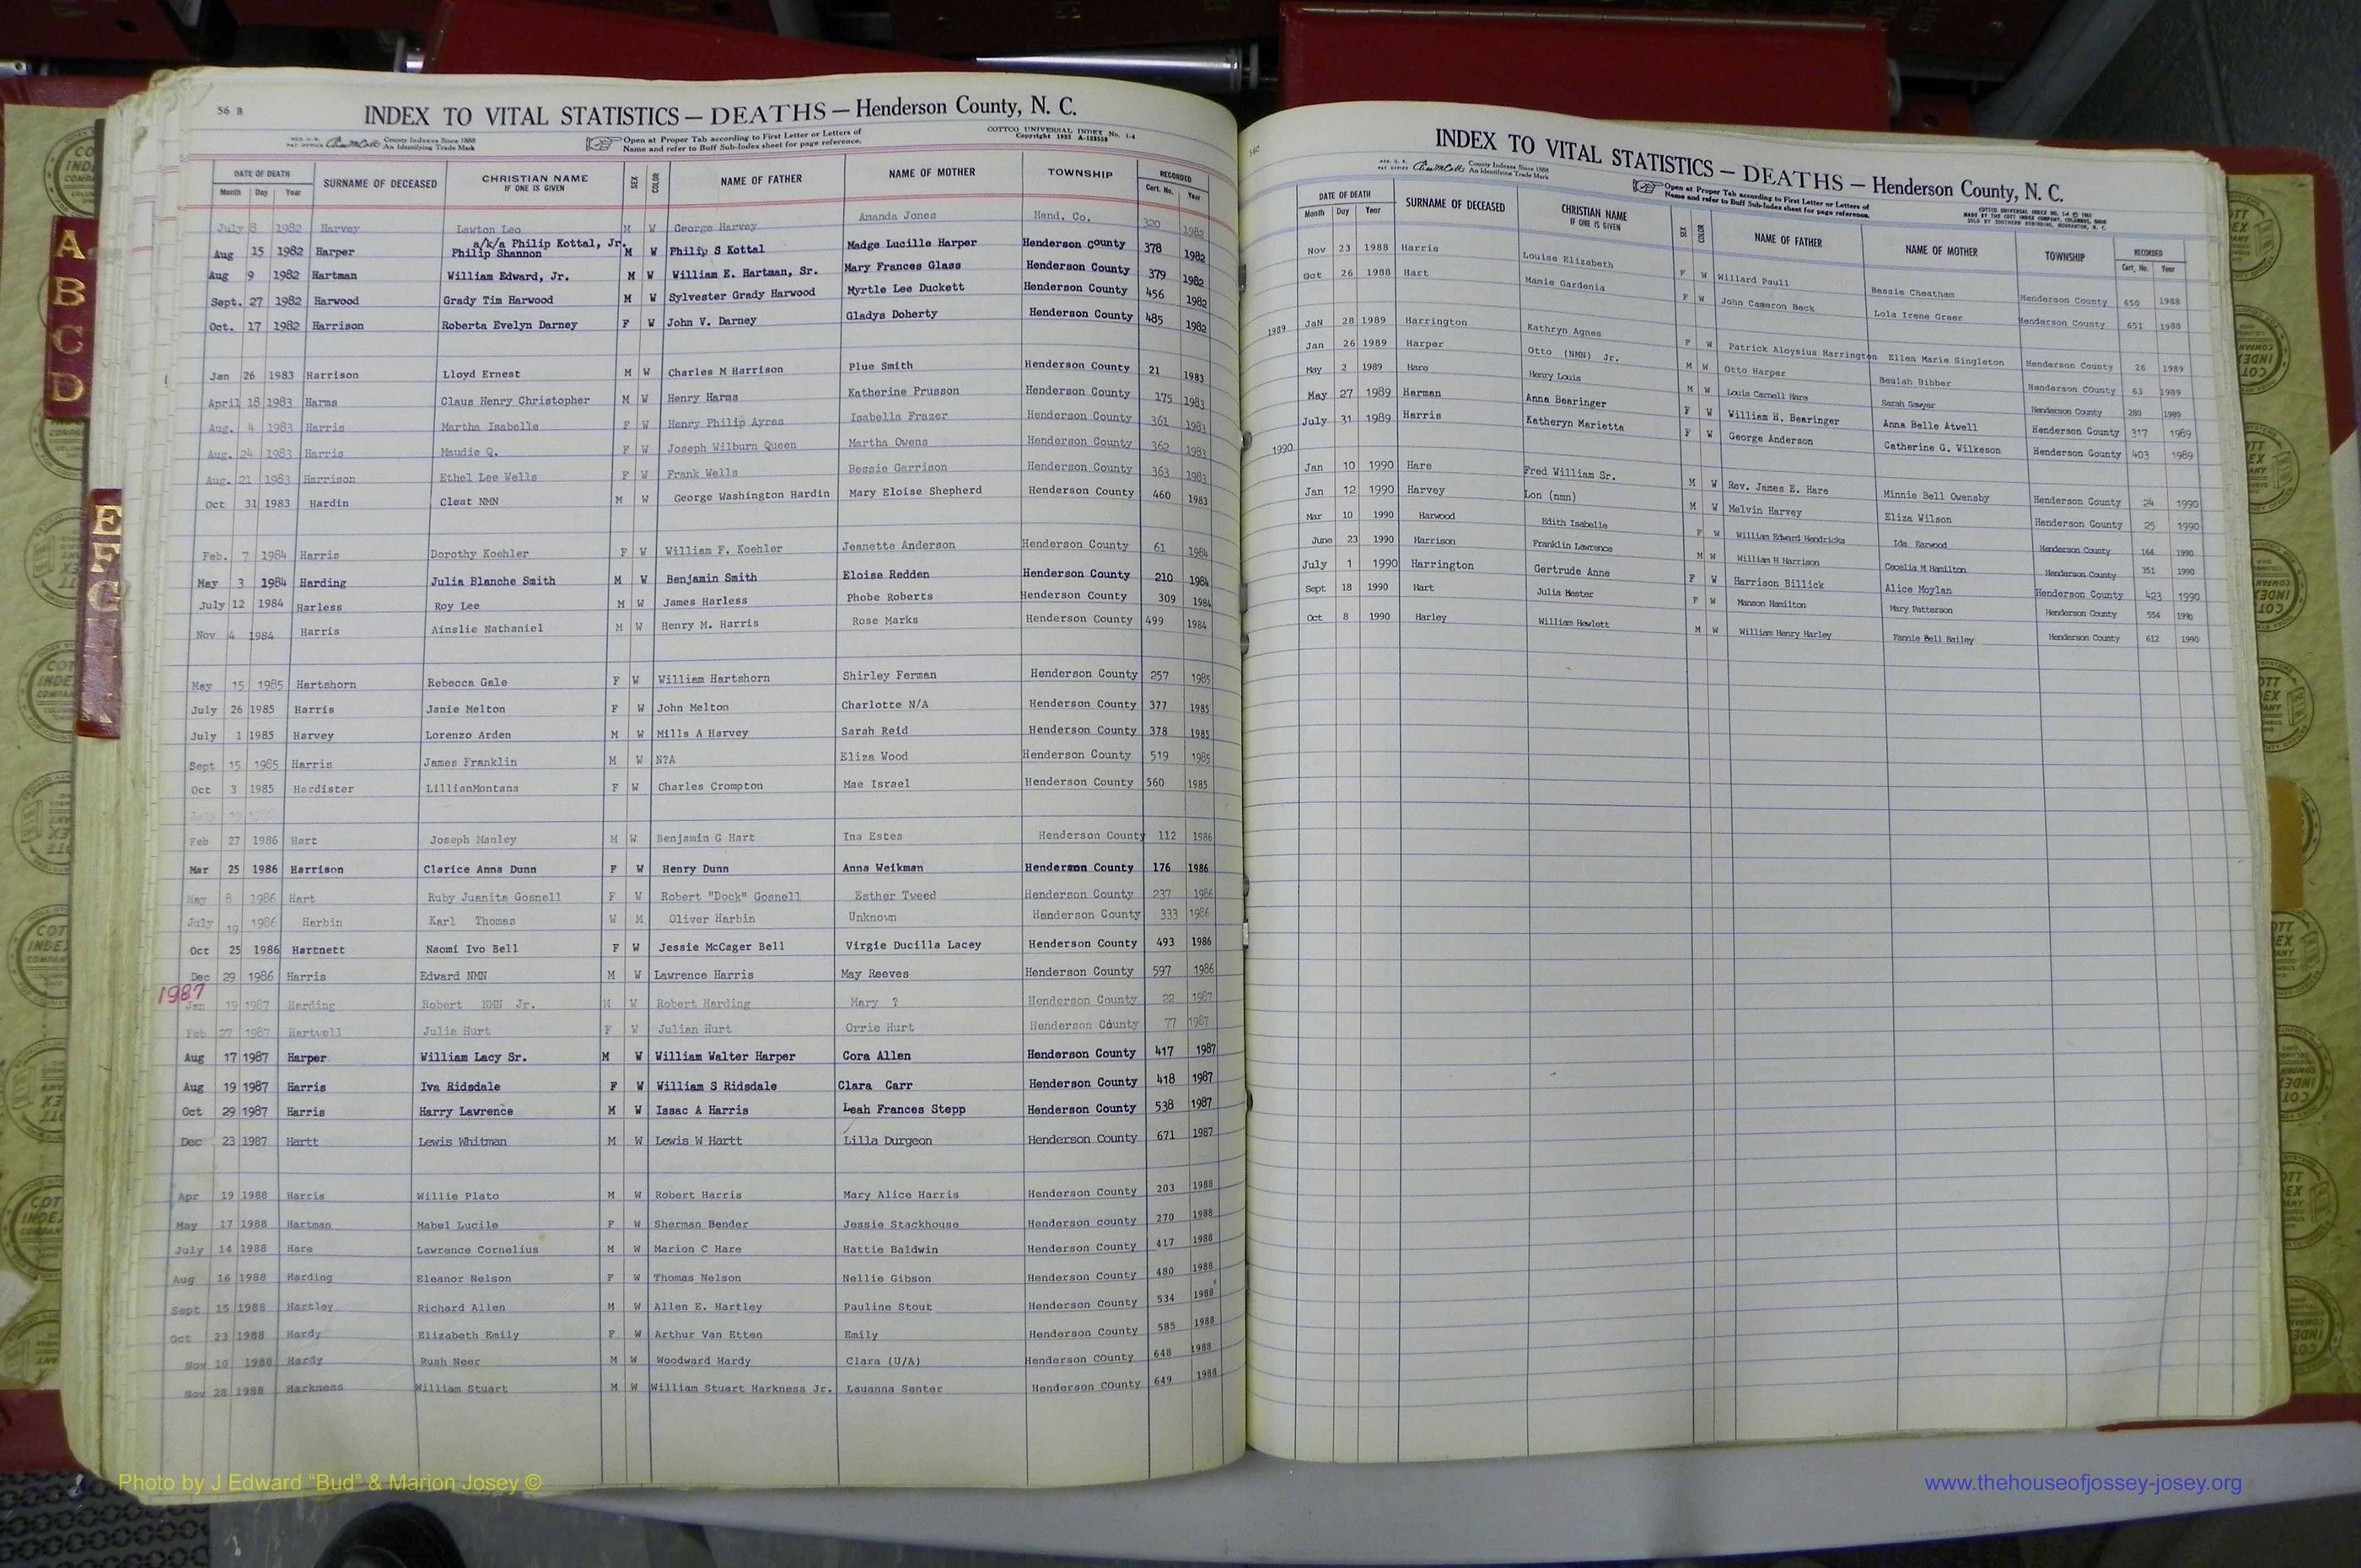 56 B
INDEX TO VITAL STATISTICS — DEATHS — Henderson County, N. C.
REG. U. S. PAT. OFFICE County Indexes Since 1888 An Identifying Trade Mark
Open at Proper Tab according to First Letter or Letters of Name and refer to Buff Sub-Index sheet for page reference.
COTTCO UNIVERSAL INDEX No. 1-4
DATE OF DEATH Month Day Year SURNAME OF DECEASED CHRISTIAN NAME IF ONE IS GIVEN SEX COLOR NAME OF FATHER NAME OF MOTHER TOWNSHIP RECORDED Cert. No. Year
July 8 1982 Harvey Lawton Leo M W George Harvey Amanda Jones Hend. Co. 320 1982
a/k/a Philip Kottal, Jr.
Aug 15 1982 Harper Philip Shannon M W Philip S Kottal Madge Lucille Harper Henderson County 378 1982
Aug 9 1982 Hartman William Edward, Jr. M W William E. Hartman, Sr. Mary Frances Glass Henderson County 379 1982
Sept. 27 1982 Harwood Grady Tim Harwood M W Sylvester Grady Harwood Myrtle Lee Duckett Henderson County 456 1982
Oct. 17 1982 Harrison Roberta Evelyn Darney F W John V. Darney Gladys Doherty Henderson County 485 1982
Jan 26 1983 Harrison Lloyd Ernest M W Charles M Harrison Plue Smith Henderson County 21 1983
April 18 1983 Harms Claus Henry Christopher M W Henry Harms Katherine Prusson Henderson County 175 1983
Aug. 4 1983 Harris Martha Isabelle F W Henry Philip Ayres Isabella Frazer Henderson County 361 1983
Aug. 24 1983 Harris Maudie Q. F W Joseph Wilburn Queen Martha Owens Henderson County 362 1983
Aug. 21 1983 Harrison Ethel Lee Wells F W Frank Wells Bessie Garrison Henderson County 363 1983
Oct 31 1983 Hardin Cleat NMN M W George Washington Hardin Mary Eloise Shepherd Henderson County 460 1983
Feb. 7 1984 Harris Dorothy Koehler F W William F. Koehler Jeanette Anderson Henderson County 61 1984
May 3 1984 Harding Julia Blanche Smith M W Benjamin Smith Eloise Redden Henderson County 210 1984
July 12 1984 Harless Roy Lee M W James Harless Phobe Roberts Henderson County 309 1984
Nov 4 1984 Harris Ainslie Nathaniel M W Henry M. Harris Rose Marks Henderson County 499 1984
May 15 1985 Hartshorn Rebecca Gale F W William Hartshorn Shirley Ferman Henderson County 257 1985
July 26 1985 Harris Janie Melton F W John Melton Charlotte N/A Henderson County 377 1985
July 1 1985 Harvey Lorenzo Arden M W Mills A Harvey Sarah Reid Henderson County 378 1985
Sept 15 1985 Harris James Franklin M W N?A Eliza Wood Henderson County 519 1985
Oct 3 1985 Hardister LillianMontana F W Charles Crompton Mae Israel Henderson County 560 1985
Feb 27 1986 Hart Joseph Manley M W Benjamin G Hart Ina Estes Henderson County 112 1986
Mar 25 1986 Harrison Clarice Anna Dunn F W Henry Dunn Anna Weikman Henderson County 176 1986
May 8 1986 Hart Ruby Juanita Gosnell F W Robert "Dock" Gosnell Esther Tweed Henderson County 237 1986
July 19 1986 Harbin Karl Thomas W M Oliver Harbin Unknown Henderson County 333 1986
Oct 25 1986 Hartnett Naomi Ivo Bell F W Jessie McCager Bell Virgie Ducilla Lacey Henderson County 493 1986
Dec 29 1986 Harris Edward NMN M W Lawrence Harris May Reeves Henderson County 597 1986
1987
Jan 19 1987 Harding Robert NMN Jr. M W Robert Harding Mary ? Henderson County 22 1987
Feb 27 1987 Hartwell Julia Hurt F W Julian Hurt Orrie Hurt Henderson County 77 1987
Aug 17 1987 Harper William Lacy Sr. M W William Walter Harper Cora Allen Henderson County 417 1987
Aug 19 1987 Harris Iva Ridsdale F W William S Ridsdale Clara Carr Henderson County 418 1987
Oct 29 1987 Harris Harry Lawrence M W Issac A Harris Leah Frances Stepp Henderson County 538 1987
Dec 23 1987 Hartt Lewis Whitman M W Lewis W Hartt Lilla Durgeon Henderson County 671 1987
Apr 19 1988 Harris Willie Plato M W Robert Harris Mary Alice Harris Henderson County 203 1988
May 17 1988 Hartman Mabel Lucile F W Sherman Bender Jessie Stackhouse Henderson county 270 1988
July 14 1988 Hare Lawrence Cornelius M W Marion C Hare Hattie Baldwin Henderson County 417 1988
Aug 16 1988 Harding Eleanor Nelson F W Thomas Nelson Nellie Gibson Henderson County 480 1988
Sept 15 1988 Hartley Richard Allen M W Allen E. Hartley Pauline Stout Henderson County 534 1988
Oct 23 1988 Hardy Elizabeth Emily F W Arthur Van Etten Emily Henderson County 585 1988
Nov 10 1988 Hardy Rush Neer M W Woodward Hardy Clara (U/A) Henderson COunty 648 1988
Nov 28 1988 Harkness William Stuart M W William Stuart Harkness Jr. Lauanna Senter Henderson COunty 649 1988
INDEX TO VITAL STATISTICS — DEATHS — Henderson County, N. C.
REG. U. S. PAT. OFFICE County Indexes Since 1888 An Identifying Trade Mark
Open at Proper Tab according to First Letter or Letters of Name and refer to Buff Sub-Index sheet for page reference.
DATE OF DEATH Month Day Year SURNAME OF DECEASED CHRISTIAN NAME IF ONE IS GIVEN SEX COLOR NAME OF FATHER NAME OF MOTHER TOWNSHIP RECORDED Cert. No. Year
Nov 23 1988 Harris Louise Elizabeth F W Willard Paull Bessie Cheatham Henderson County 650 1988
Oct 26 1988 Hart Mamie Gardenia F W John Cameron Beck Lola Irene Greer Henderson County 651 1988
1989
JaN 28 1989 Harrington Kathryn Agnes F W Patrick Aloysius Harrington Ellen Marie Singleton Henderson County 26 1989
Jan 26 1989 Harper Otto (NMN) Jr. M W Otto Harper Beulah Bibber Henderson County 63 1989
May 2 1989 Hare Henry Louis M W Louis Carnell Hare Sarah Sawyer Henderson County 280 1989
May 27 1989 Harman Anna Bearinger F W William H. Bearinger Anna Belle Atwell Henderson County 317 1989
July 31 1989 Harris Katheryn Marietta F W George Anderson Catherine G. Wilkeson Henderson County 403 1989
1990
Jan 10 1990 Hare Fred William Sr. M W Rev. James E. Hare Minnie Bell Owensby Henderson County 24 1990
Jan 12 1990 Harvey Lon (nmn) M W Melvin Harvey Eliza Wilson Henderson County 25 1990
Mar 10 1990 Harwood Edith Isabelle F W William Edward Hendricks Ida Earwood Henderson County 164 1990
June 23 1990 Harrison Franklin Lawrence M W William H Harrison Cecelia M Hamilton Henderson County 351 1990
July 1 1990 Harrington Gertrude Anne F W Harrison Billick Alice Moylan Henderson County 423 1990
Sept 18 1990 Hart Julia Hester F W Manson Hamilton Mary Patterson Henderson County 554 1990
Oct 8 1990 Harley William Hewlett M W William Henry Harley Fannie Bell Bailey Henderson County 612 1990
A
B
C
D
E
F
G
Photo by J Edward “Bud” & Marion Josey ©
www.thehouseofjossey-josey.org